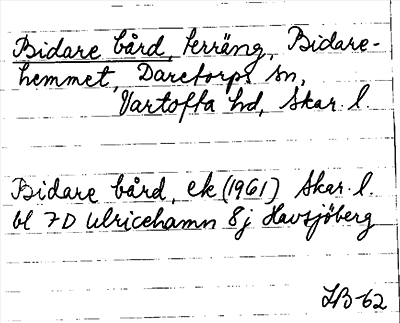 Bidare bård, terräng, Bidare-
hemmet, Daretorps sn,
Vartofta hd, Skar. l.
Bidare bård, ek (1961) Skar. l.
bl 7D Ulricehamn 8j Havsjöberg
IB-62